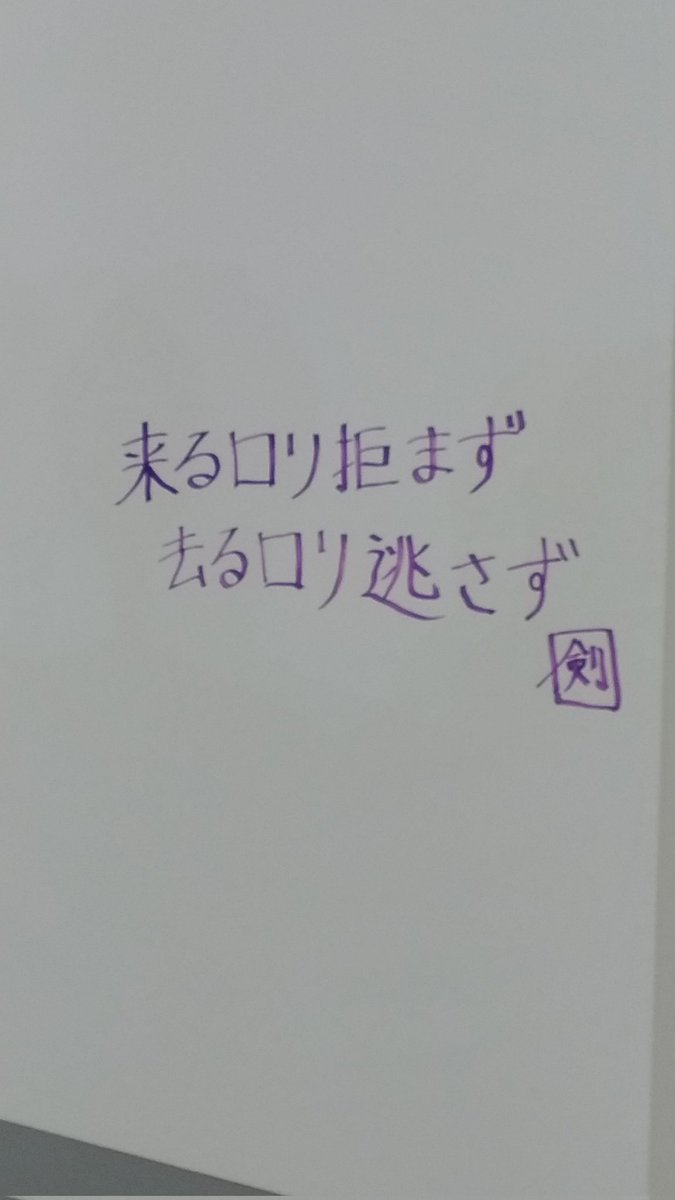 来るロリ拒まず
去るロリ逃さず
剣